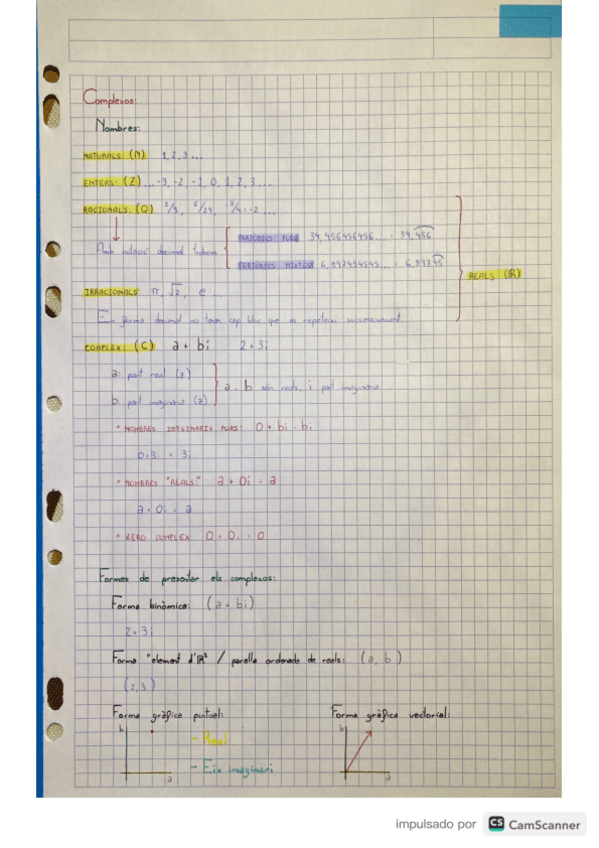 Complexos:
Nombres:
NATURALS: (N) 1, 2, 3 ...
ENTERS: (Z) ... -3, -2, -1, 0, 1, 2, 3 ...
RACIONALS: (Q)
PERIÒDICS PURS 34, 456456456... = 34, 456
Amb notació decimal
PERIÒDICS MIXTOS
REALS (R)
IRRACIONALS: π, √2, e ...
En forma decimal no tenen cap bloc que es repeteixi successivament.
COMPLEX: (C) a + bi 2 + 3i
a: part real (z)
a, b són reals, i part imaginària
b: part imaginària (z)
• NOMBRES IMAGINARIS PURS: 0 + bi = bi
0+3i = 3i
• NOMBRES "REALS": a + 0i = a
a + 0i = a
• ZERO COMPLEX 0 + 0i = 0
Formes de presentar els complexos:
Forma binòmica: (a + bi)
2 + 3i
Forma "element d'R² / parella ordenada de reals: (a, b)
(2,3)
Forma gràfica puntual: Forma gràfica vectorial:
b b
- Real
- Eix imaginari
a a
impulsado por CS CamScanner